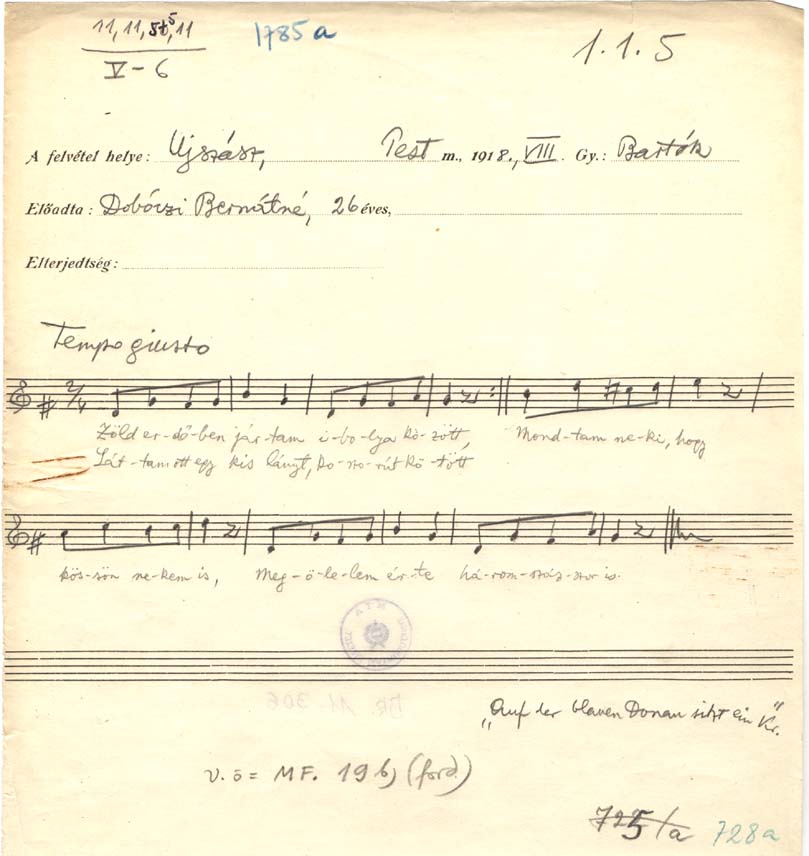 11, 11, 5+5, 11
V-6
1785a
1.1.5
A felvétel helye: Ujszász, Pest m., 1918., VIII. Gy.: Bartók
Előadta: Dobóczi Bernátné, 26 éves,
Elterjedtség:
Tempo giusto
2/4
Zöld er-dő-ben jár-tam i-bo-lya kö-zött, Mond-tam ne-ki, hogy
Lát-tam ott egy kis lányt, ko-szo-rút kö-tött
kös-sön ne-kem is, Meg-ö-le-lem ér-te há-rom-száz-szor is.
BR 11 306
„Auf der blauen Donau sitzt ein Kr."
v. ö = MF. 19 b) (ford.)
725/a 728a